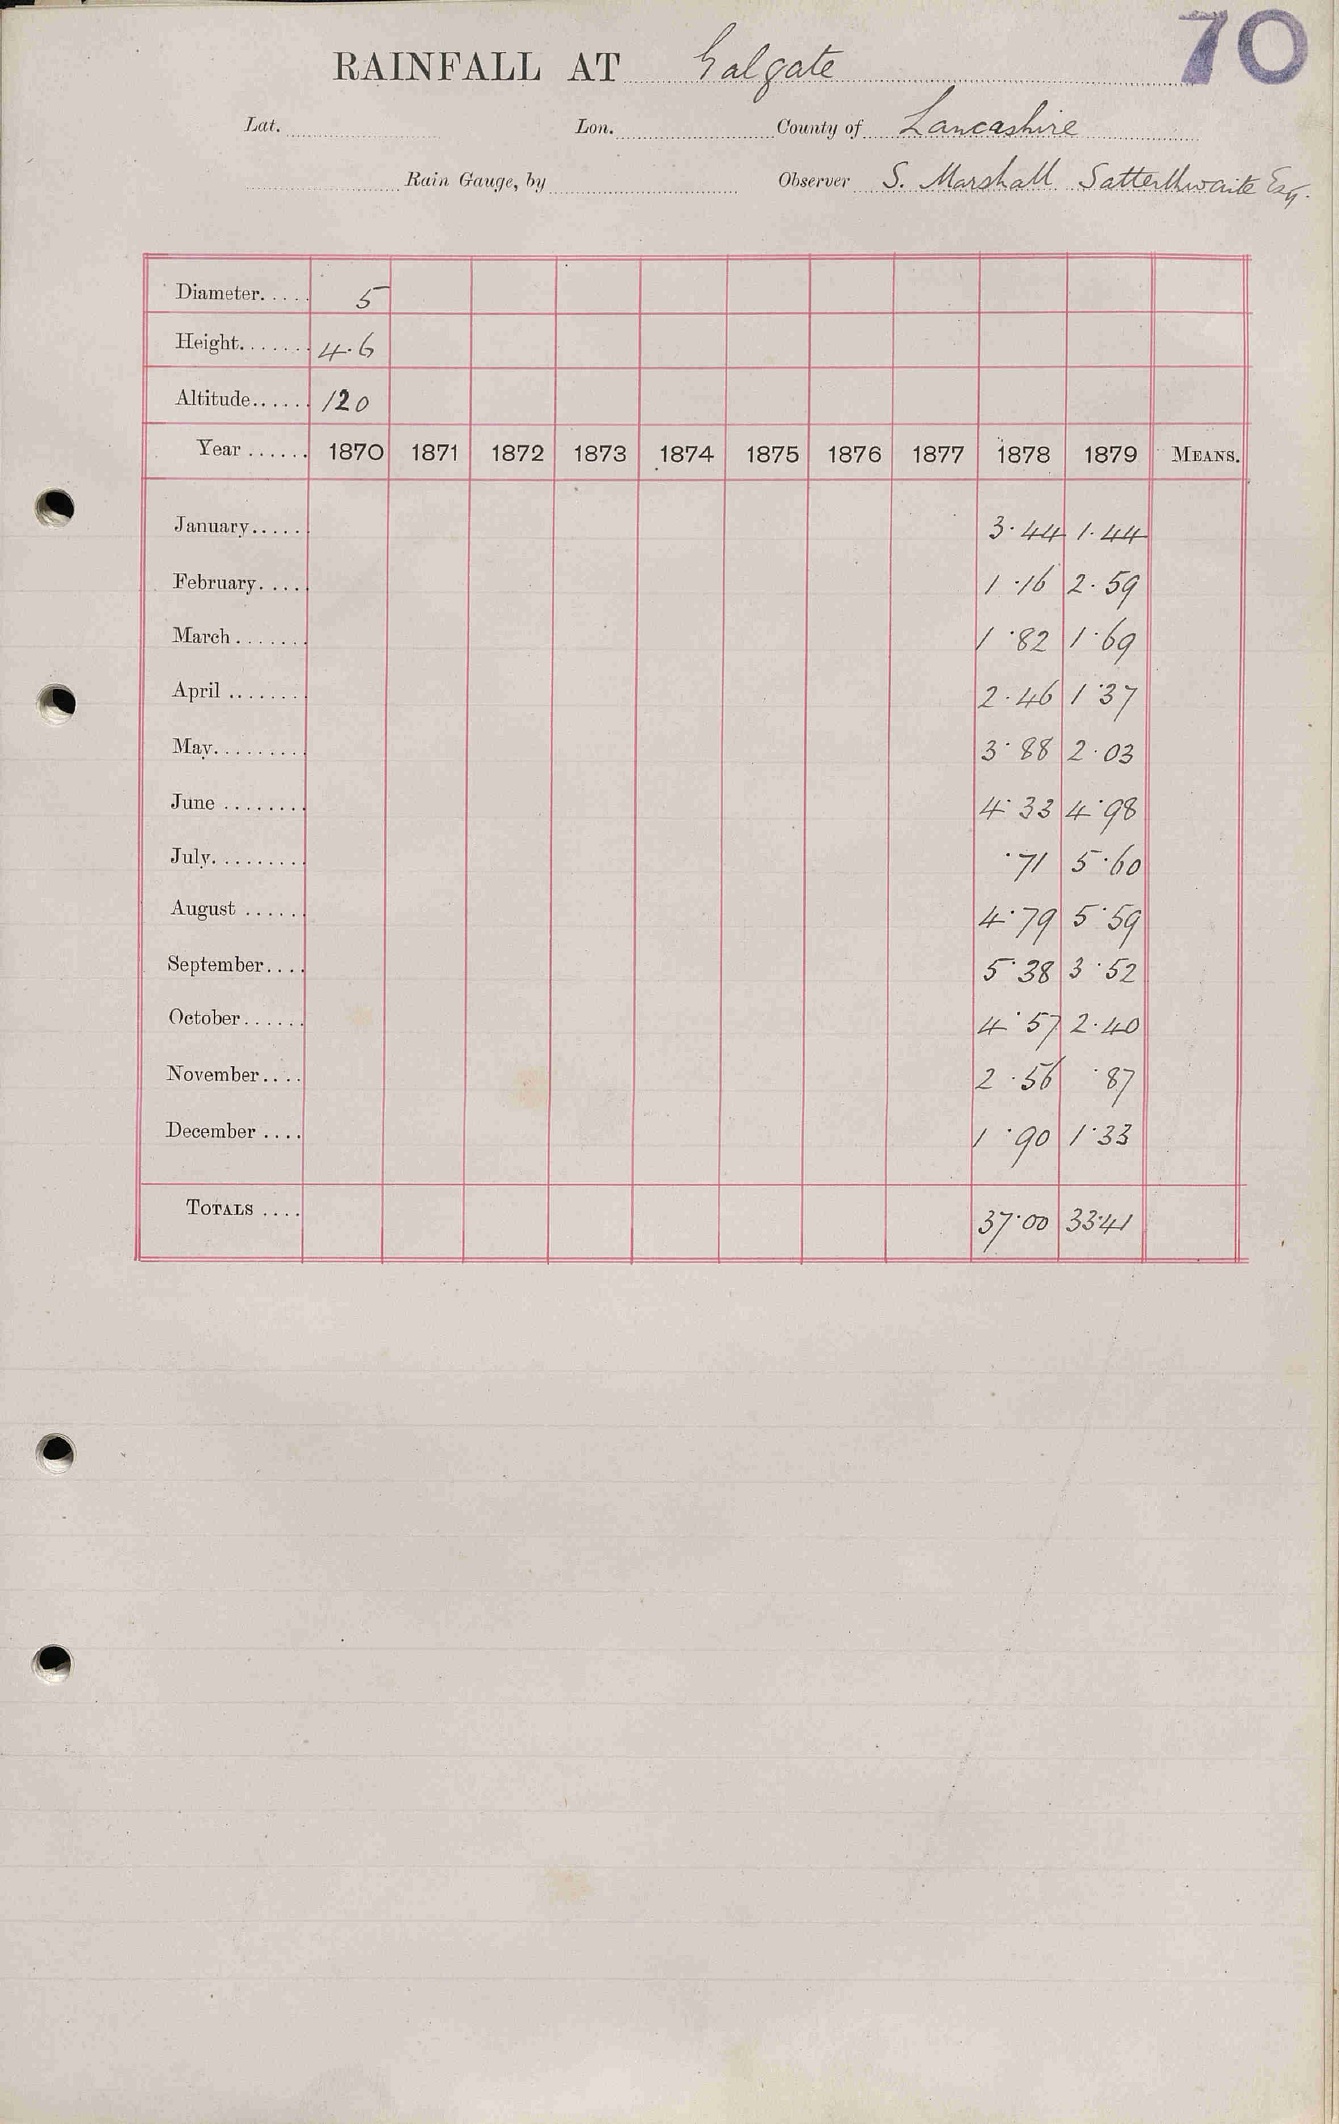 70
RAINFALL AT Galgate
Lat. Lon. County of Lancashire
Rain Gauge, by Observer S. Marshall Satterthwaite Esq.
Diameter..... 5
Height....... 4.6
Altitude...... 120
Year ...... 1870 1871 1872 1873 1874 1875 1876 1877 1878 1879 MEANS.
January..... 3.44 1.44
February..... 1.16 2.59
March ....... 1.82 1.69
April ....... 2.46 1.37
May......... 3.88 2.03
June ........ 4.33 4.98
July......... .71 5.60
August ...... 4.79 5.59
September.... 5.38 3.52
October...... 4.57 2.40
November.... 2.56 .87
December .... 1.90 1.33
TOTALS .... 37.00 33.41